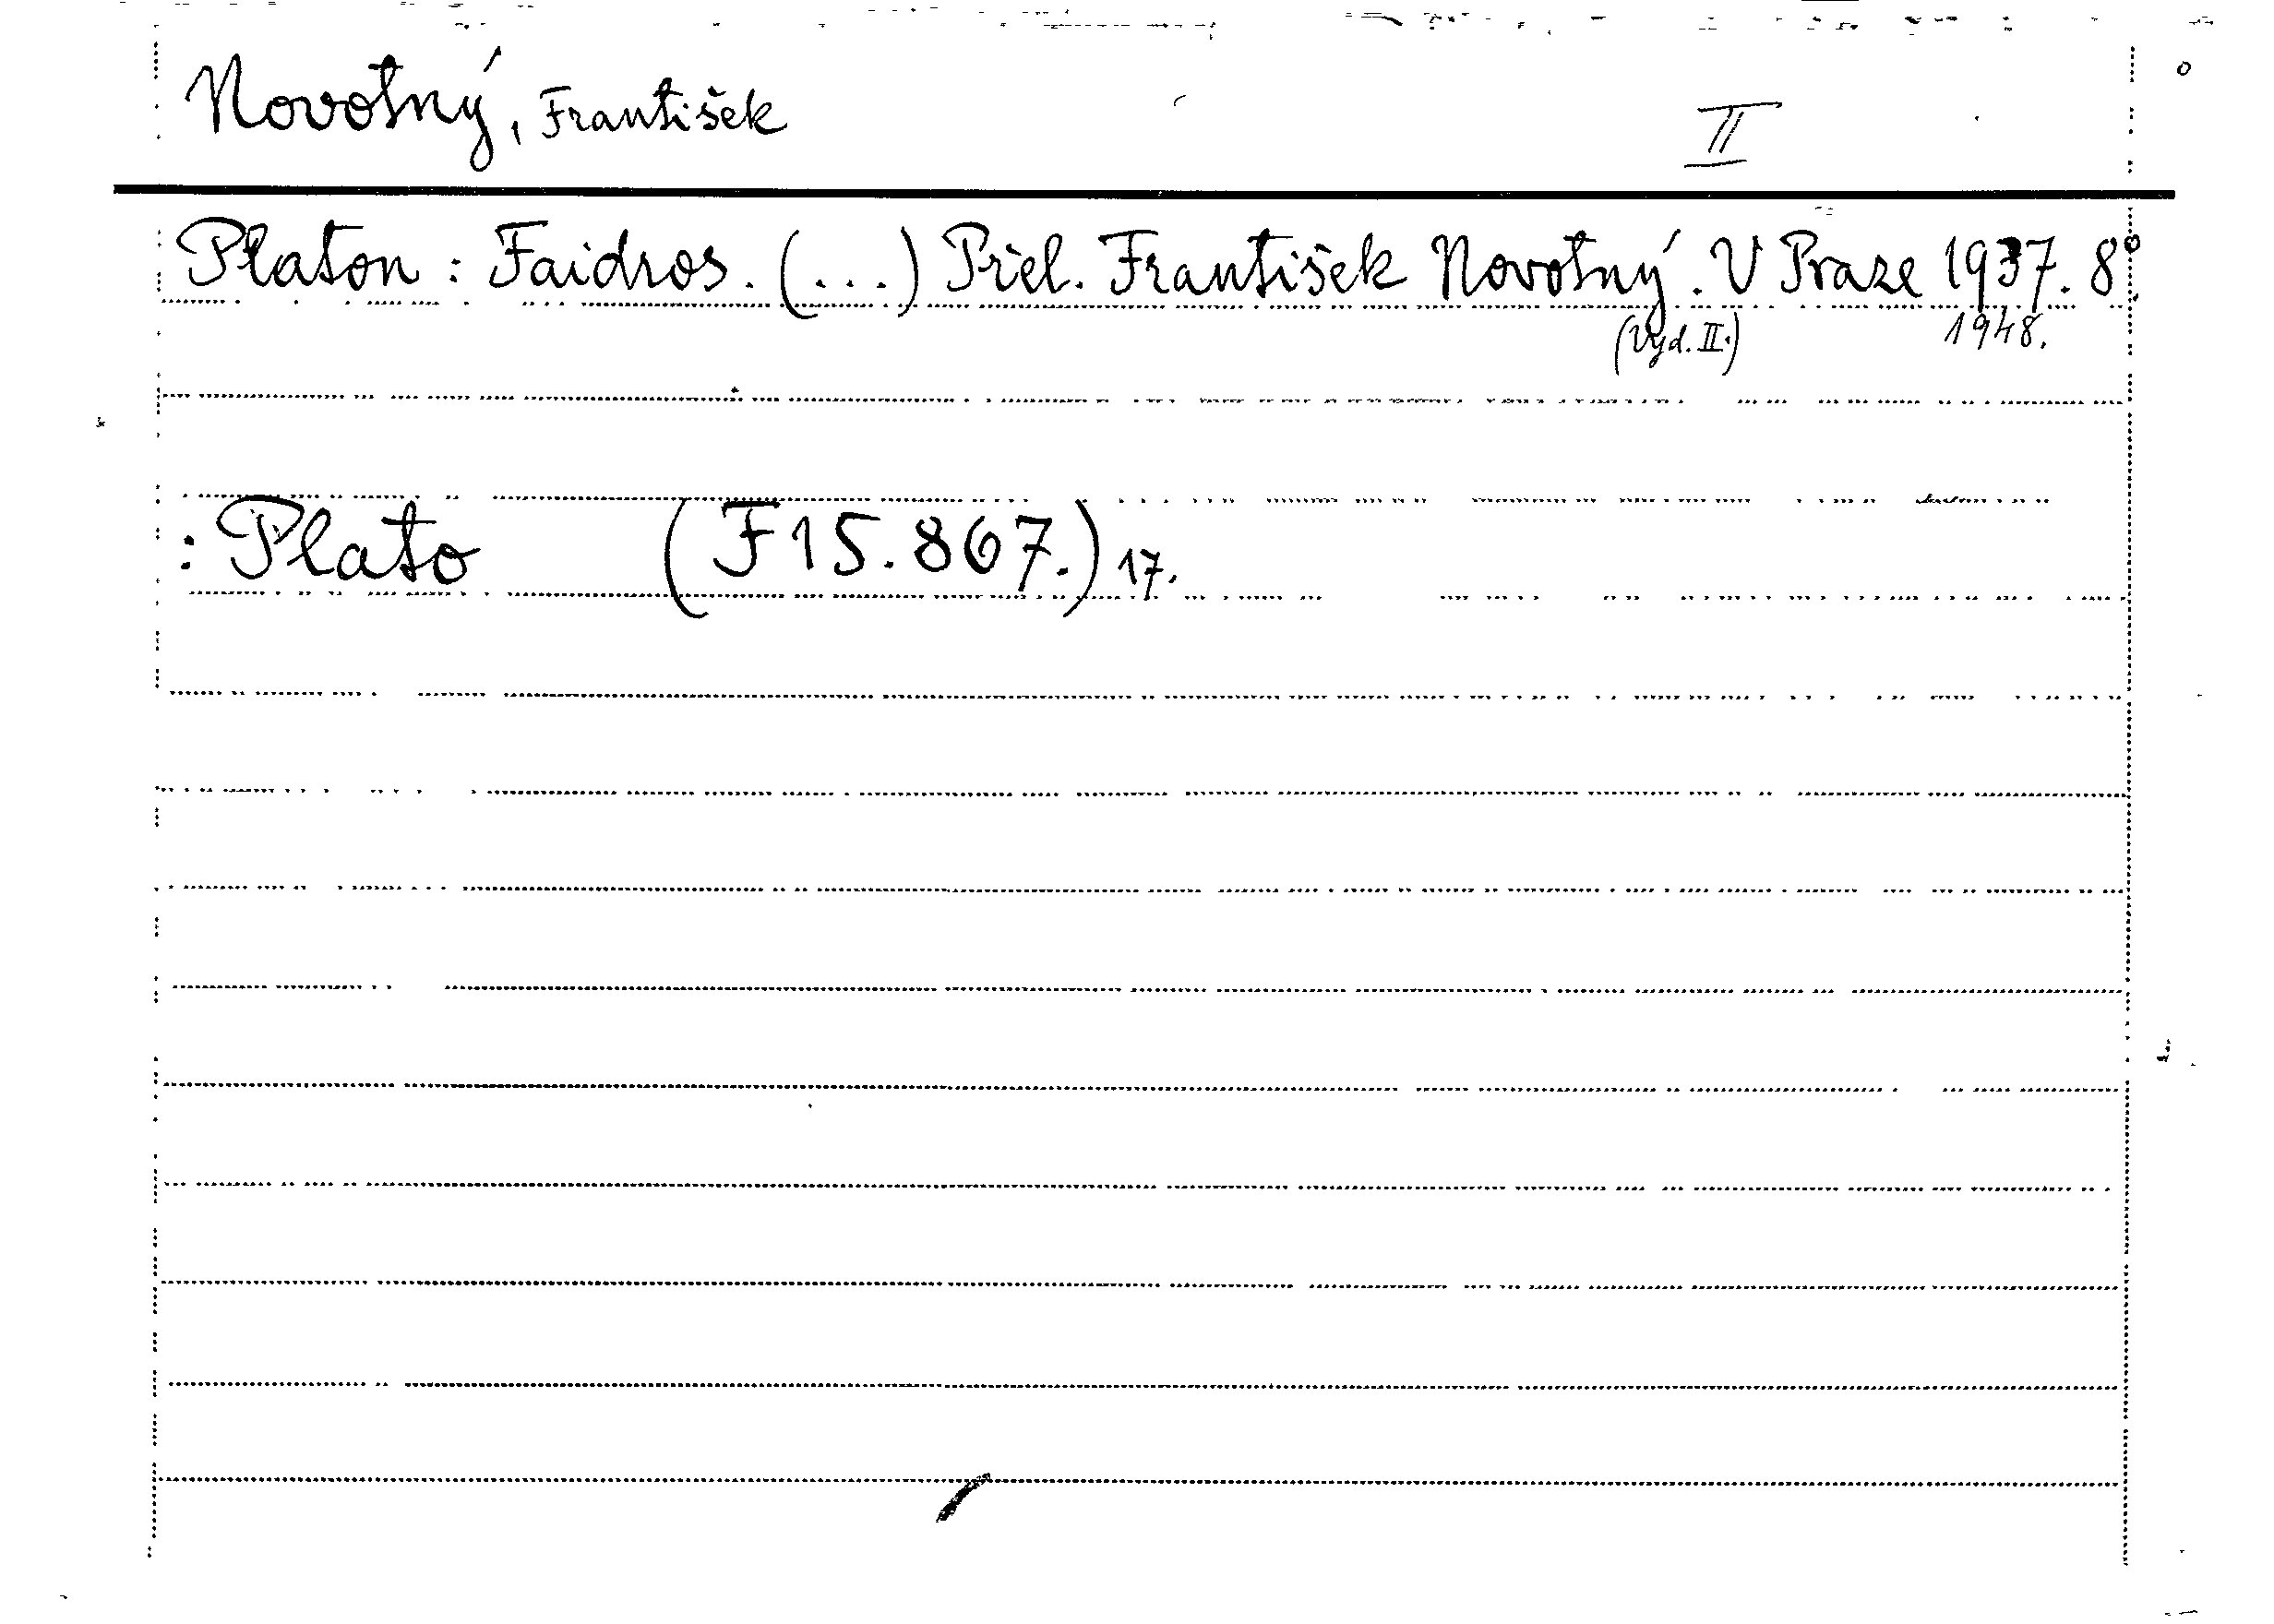 Novotný, František II
Platon : Faidros. (...) Přel. František Novotný. V Praze 1937. 8°.
(Vyd. II.) 1948.
: Plato (F 15.867.) 17.